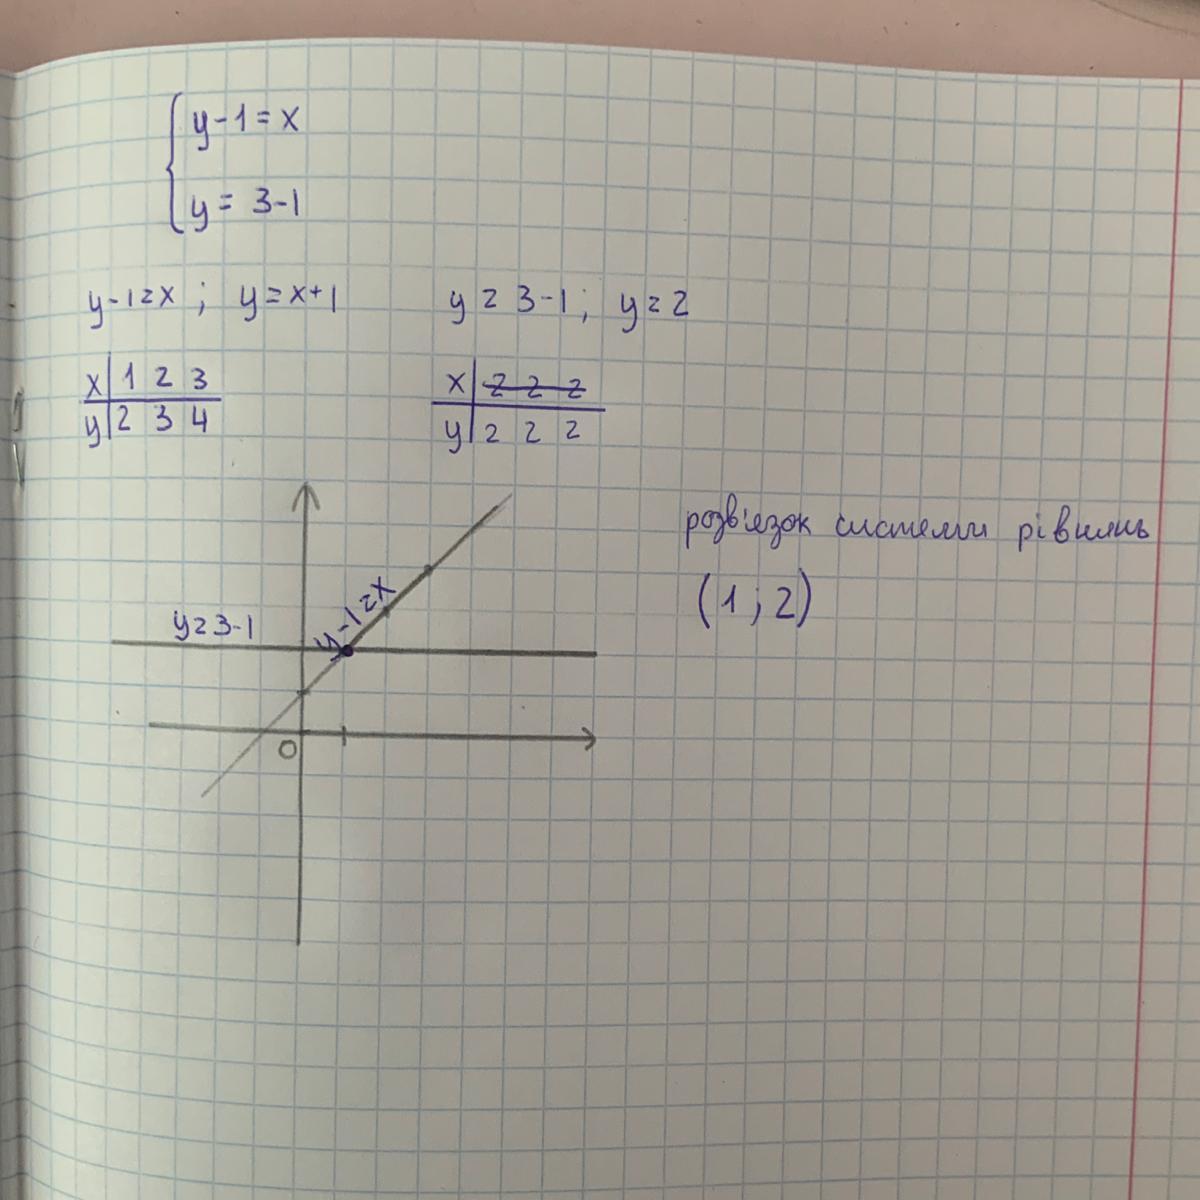 y-1=x
y= 3-1
y-1=x ; y=x+1 y=3-1; y=2
x 1 2 3 x 2 2 2
y 2 3 4 y 2 2 2
розв'язок системи рівнянь
(1 ; 2)
y=3-1 y-1=x
0